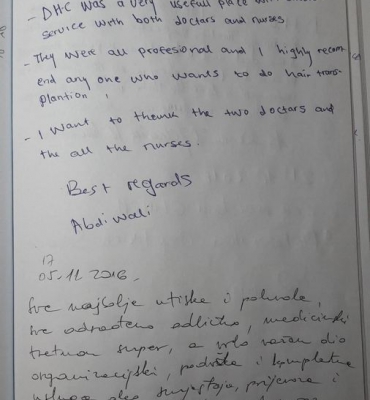 - DHC was a very usefull place with good
service with both doctors and nurses.
- They were all profesional and I highly recom
end any one who wants to do hair trans-
plantion.
- I want to thank the two doctors and
the all the nurses.
Best regards
Abdiwali
17
05.11.2016.
Sve najbolje utiske i pohvale,
sve odrađeno odlično, medicinski
tretman super, a vrlo važan dio
organizacijski, podrška i kompletna
usluga oko smještaja, prijevoza i